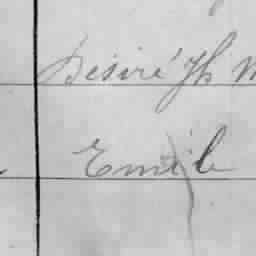 Désiré Jh
Emile